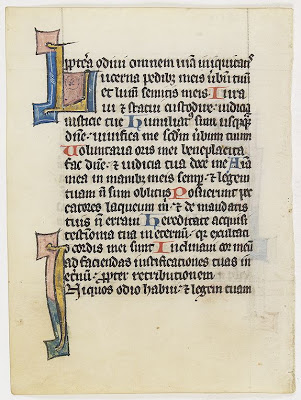 ꝓpt̃ea odiui omnem uiã iniquitat᷒
Lucerna pedibꝫ meis ũbum tuũ
et lum̃ semitis meis. Iura
ui & statui custodire iudicia
iusticie tue Humiliatꝰ sum usqꝫqꝫ
dñe · uiuifica me scd̃m ũbum tuum
Uoluntaria oris mei beneplacita
fac dñe · & iudicia tua doce me Aĩa
mea in manibꝫ meis semꝑ · & legem
tuam ñ sum oblitus Posuerunt pec
catores laqueum m̃ · & de mandatis
tuis ñ erraui Hereditate acquisi
testimonia tua in et̃nũ · q̃ exultati
o cordis mei sunt Inclinaui cor meũ
ad faciendas iustificationes tuas in
et̃nũ · ꝓpter retributionem
Iniquos odio habui · & legem tuam